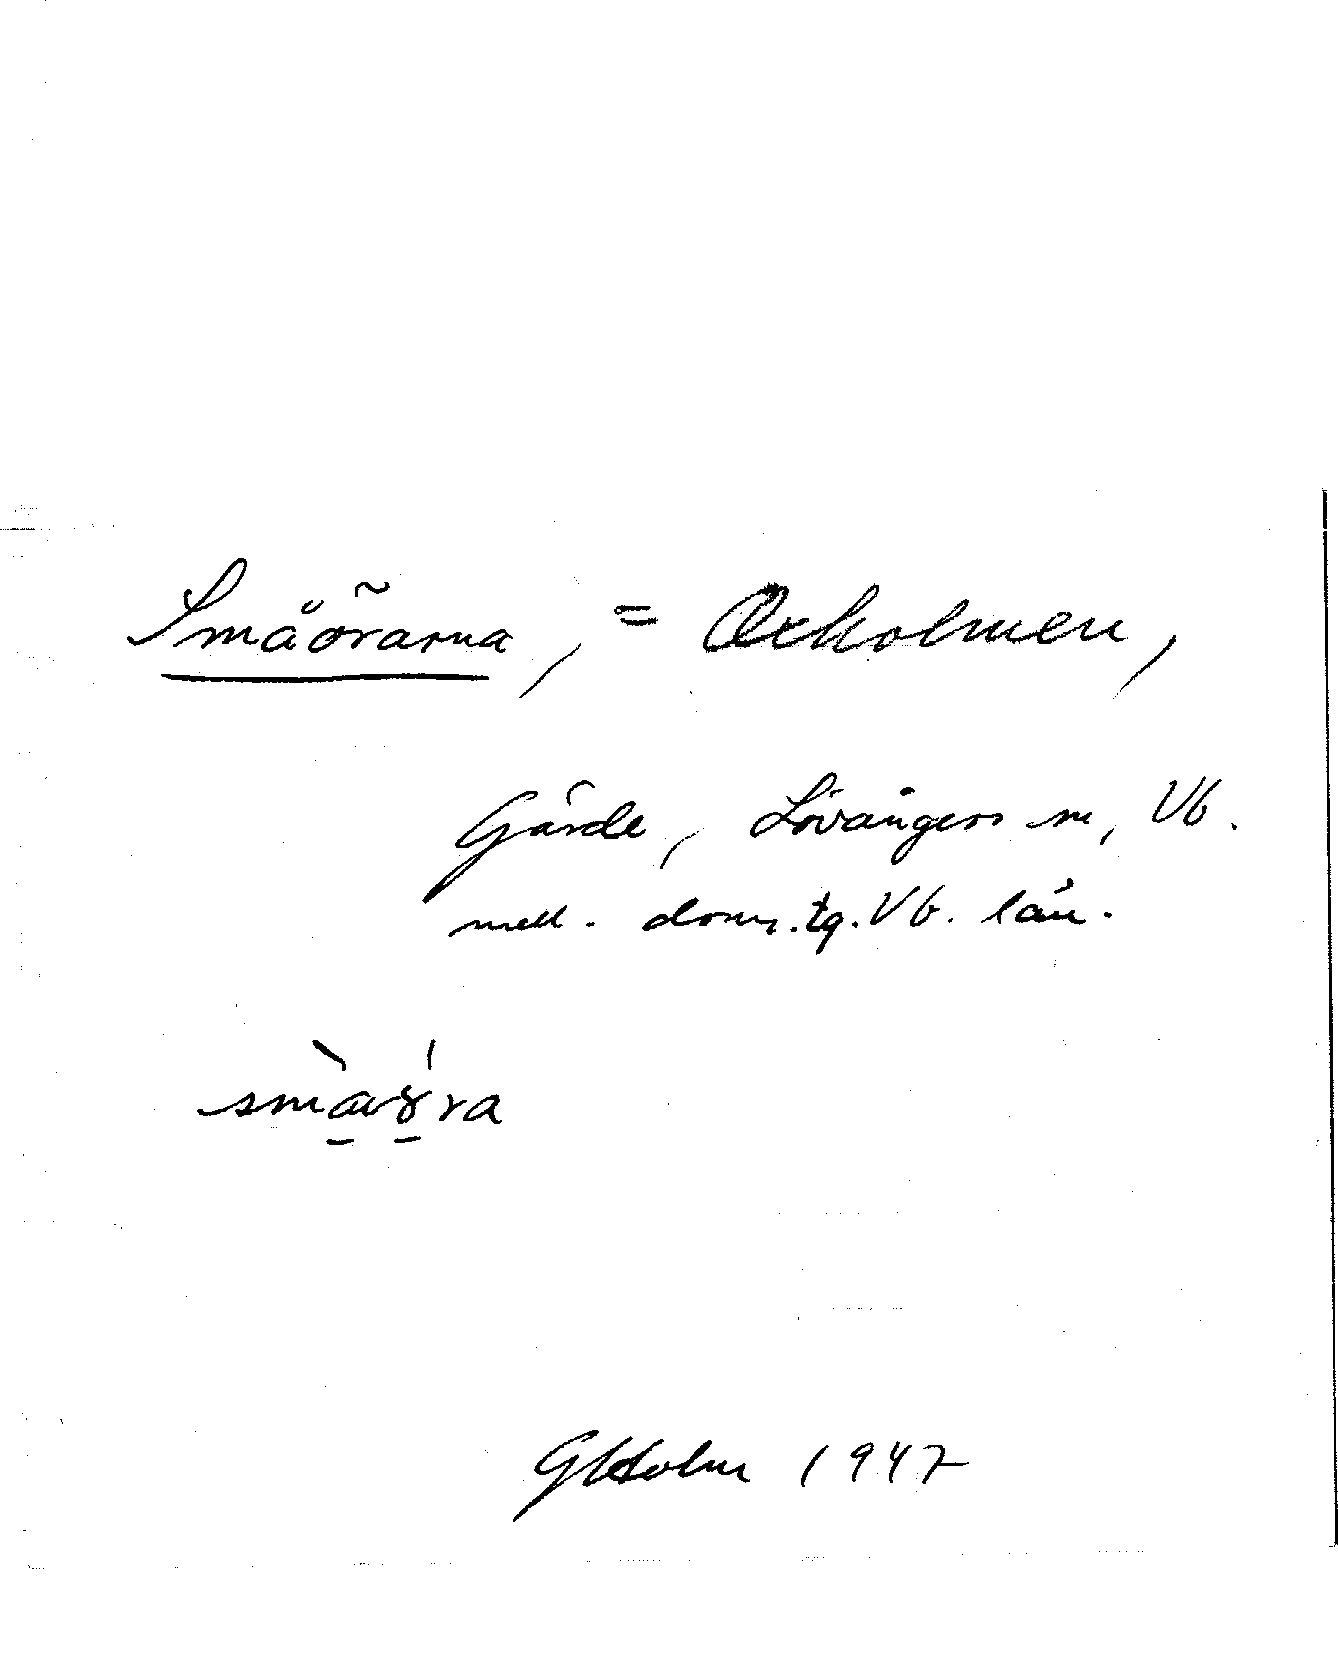 Småörarna, = Oxholmen,
Gärde, Lövångers sn, Vb.
mell. doms.tg. Vb. län.
småöra
GHolm 1947